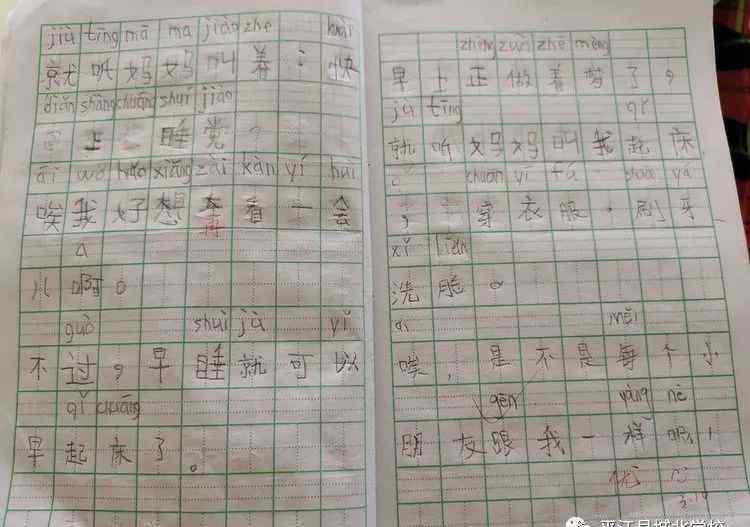 jiù tīng mā ma jiào zhe kuài
就听妈妈叫着：快
diǎn shàng chuáng shuì jiào
上 睡觉
āi wǒ hǎo xiǎng zài kàn yí huì
唉我好想再看一会
a
儿啊。
guò shuì jù yǐ
不过，早睡就可以
qǐ chuāng
早起床了。
zhèng zuò zhē mèng
早上正做着梦了，
jù tīng qǐ
就听妈妈叫我起床
chuān yī fú shuā yá
穿衣服，刷牙
xǐ liǎn
洗脸。
āi měi
唉，是不是每个小
gēn yàng ne
朋友跟我一样呢，
优
平江县城北学校